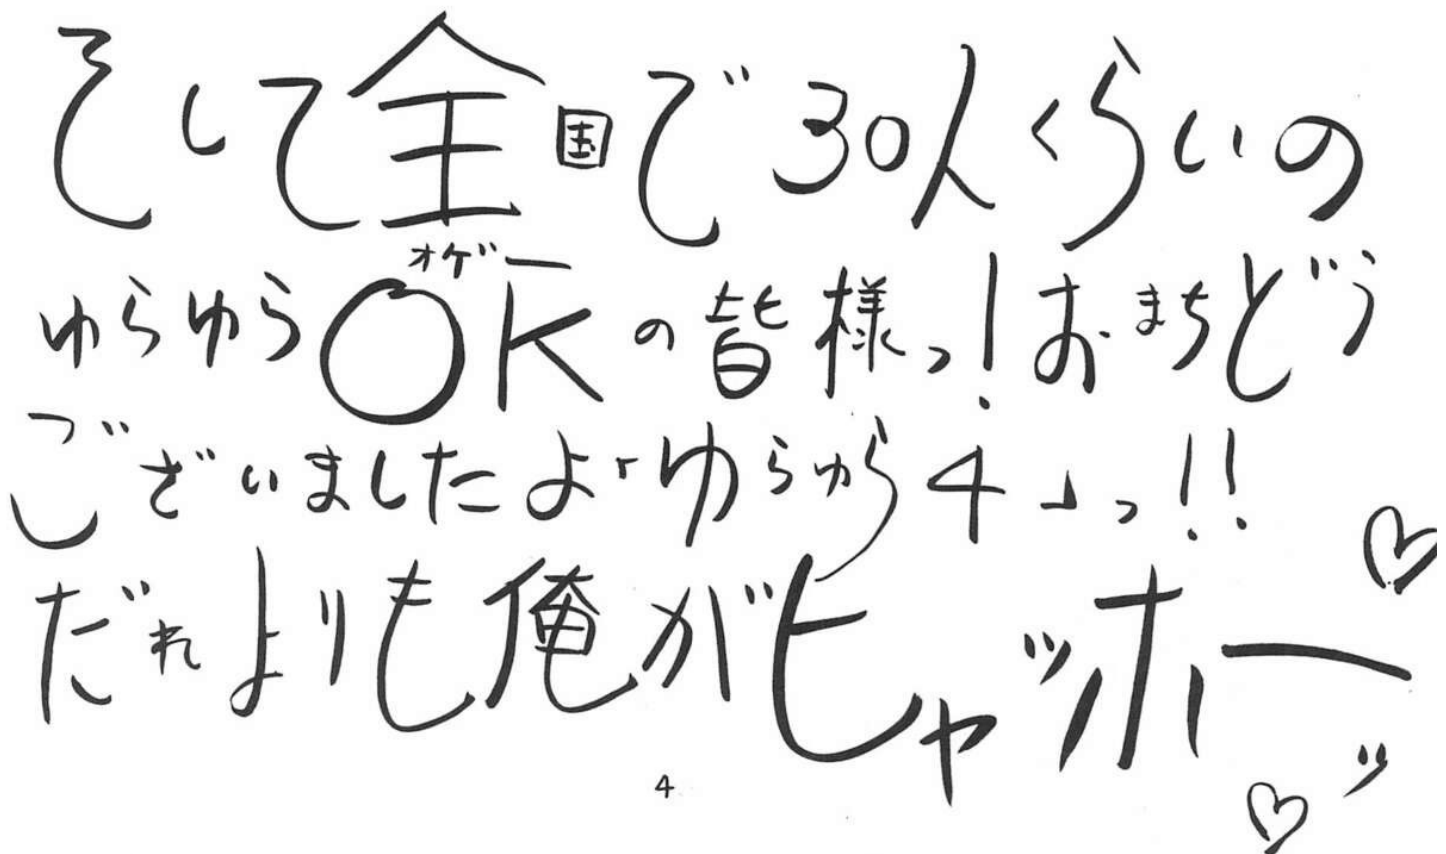 そして全国で30人くらいの
オゲー
ゆらゆらOKの皆様っ!おまちどう
ございましたよゆらゆら4っ!!
だれよりも俺がヒャッホーッ
4